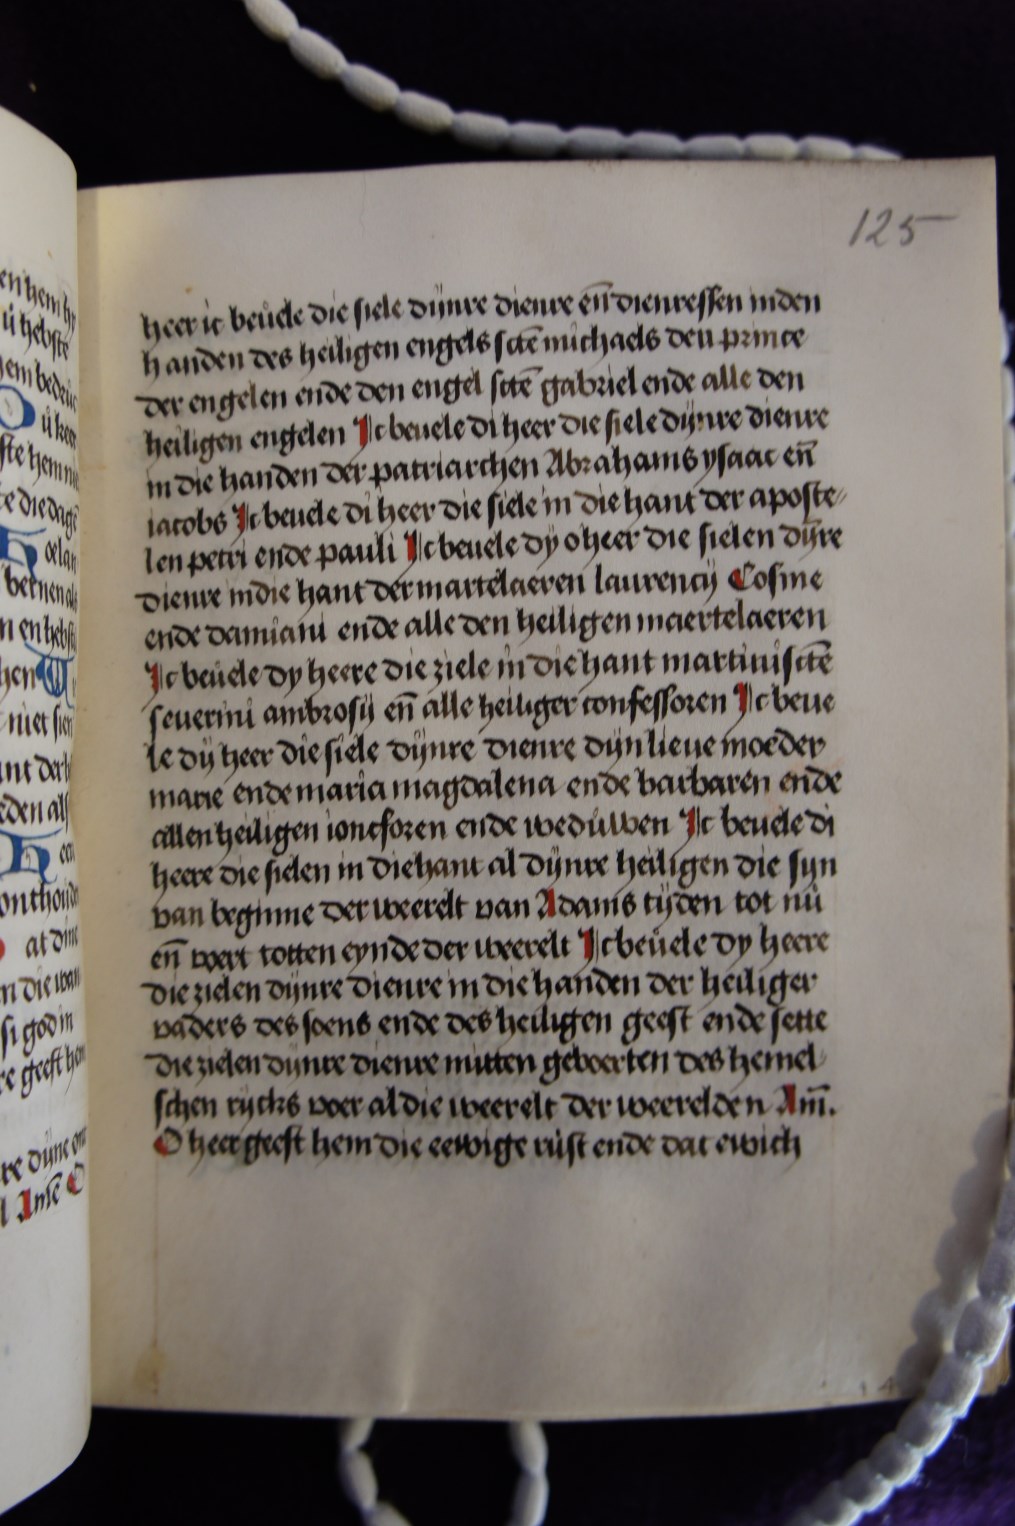 125
heer ic beuele die siele dijnre dienre eñ dienressen inden
handen des heiligen engels sctẽ michaels den prince
der engelen ende den engel sctẽ gabriel ende alle den
heiligen engelen Ic beuele di heer die siele dijnre dienre
in die handen der patriarchen Abrahams ysaac eñ
iacobs Ic beuele di heer die siele in die hant der aposte
len petri ende pauli Ic beuele dy o heer die sielen dijre
dienre indie hant der martelaeren laurencij Cosme
ende damiani ende alle den heiligen maertelaeren
Ic beuele dy heere die ziele in die hant martini sctẽ
seuerini ambrosij eñ alle heiliger confessoren Ic beue
le dij heer die siele dijnre dienre dyn lieue moeder
marie ende maria magdalena ende barbaren ende
allen heiligen ioncforen ende weduwen Ic beuele di
heere die sielen in die hant al dijnre heiligen die syn
van beginne der weerelt van Adams tijden tot nu
eñ wert totten eynde der weerelt Ic beuele dy heere
die zielen dijnre dienre in die handen der heiliger
vaders des soens ende des heiligen geest ende sette
die zielen dijnre dienre mitten geboerten des hemel
schen rijcks voer al die weerelt der weerelden Am̃.
O heer geeft hem die eewige rust ende dat ewich